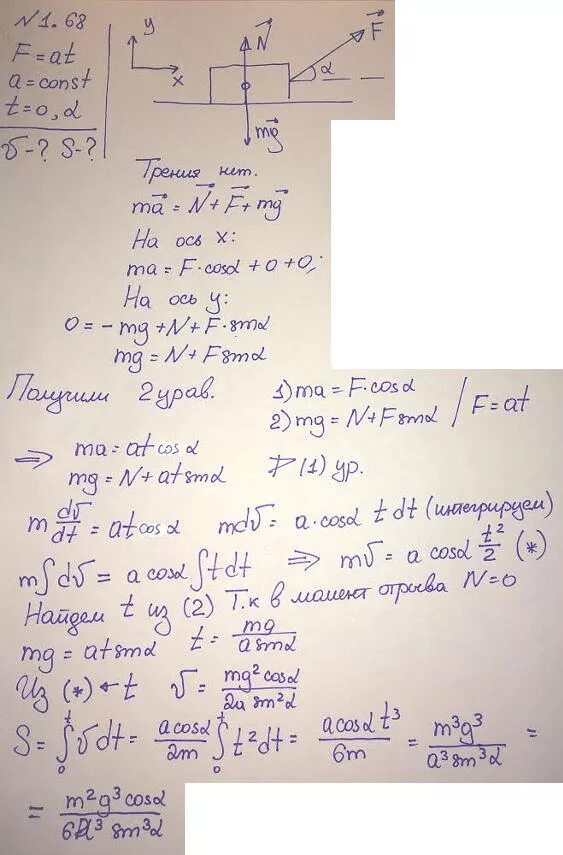 N 1.68
F = at
a = const
t = 0, α
v - ? S - ?
y
x
N
F
α
mg
Трения нет.
ma = N + F + mg
На ось x:
ma = F·cosα + 0 + 0;
На ось y:
0 = -mg + N + F·sinα
mg = N + Fsinα
Получили 2 урав. 1) ma = F·cosα
2) mg = N + Fsinα / F = at
⇒ ma = at cosα
mg = N + atsinα (1) ур.
m dv/dt = at cosα mdv = a·cosα t dt (интегрируем)
m∫dv = a cosα ∫tdt ⇒ mv = a cosα t²/2 (*)
Найдем t из (2) Т.к в момент отрыва N = 0
mg = atsinα t = mg/asinα
Из (*) ← t v = mg²cosα/2a sin²α
S = ∫₀ᵗ vdt = acosα/2m ∫₀ᵗ t²dt = acosα t³/6m = m³g³/a³sin³α =
= m²g³cosα/6a³ sin³α